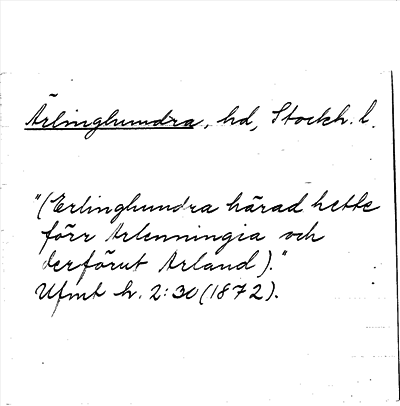 Ärlinghundra, hd, Stockh. l.
"(Erlinghundra härad hette
förr Arlenningia och
derförut Arland)."
Ufmt h. 2:30 (1872).